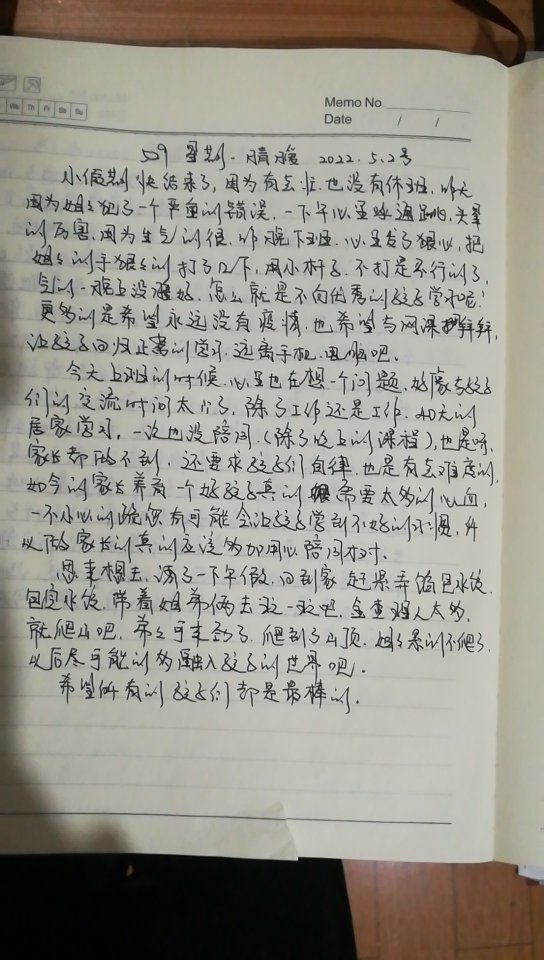 We Th Fr Sa Su
Memo No
Date / /
59 星期一 晴 暖 2022.5.2号
小假期快结束了,因为有点忙,也没有休班,昨天
因为姐姐犯了一个严重的错误,一下午心里砰砰跳,头晕
的厉害,因为生气的很,昨晚下班,心里发了狠心,把
姐姐的手狠狠的打了12下,用小杆子,不打是不行的了,
气的一晚上没睡好,怎么就是不向优秀的孩子学习呢!
更多的是希望永远没有疫情,也希望与网课拜拜,
让孩子回归正常的学习,远离手机,电脑吧。
今天上班的时候,心里也在想一个问题,好像与孩子
们的交流时间太少了,除了工作还是工作,40天的
居家学习,一次也没陪同(除了晚上的课程),也是呀,
家长都做不到,还要求孩子们自律,也是有点难度的,
如今的家长养育一个好孩子真的需要太多的心血,
一不小心的疏忽有可能会让孩子学到不好的习惯,所
以做家长的真的应该多加用心陪同才对。
思来想去,请了一下午假,回到家赶紧弄馅包水饺,
包完水饺,带着姐弟俩去玩一玩吧,金查姐人太多,
就爬山吧,弟弟可来劲了,爬到了山顶,姐姐累的不爬了,
以后尽可能的多融入孩子的世界吧。
希望所有的孩子们都是最棒的。